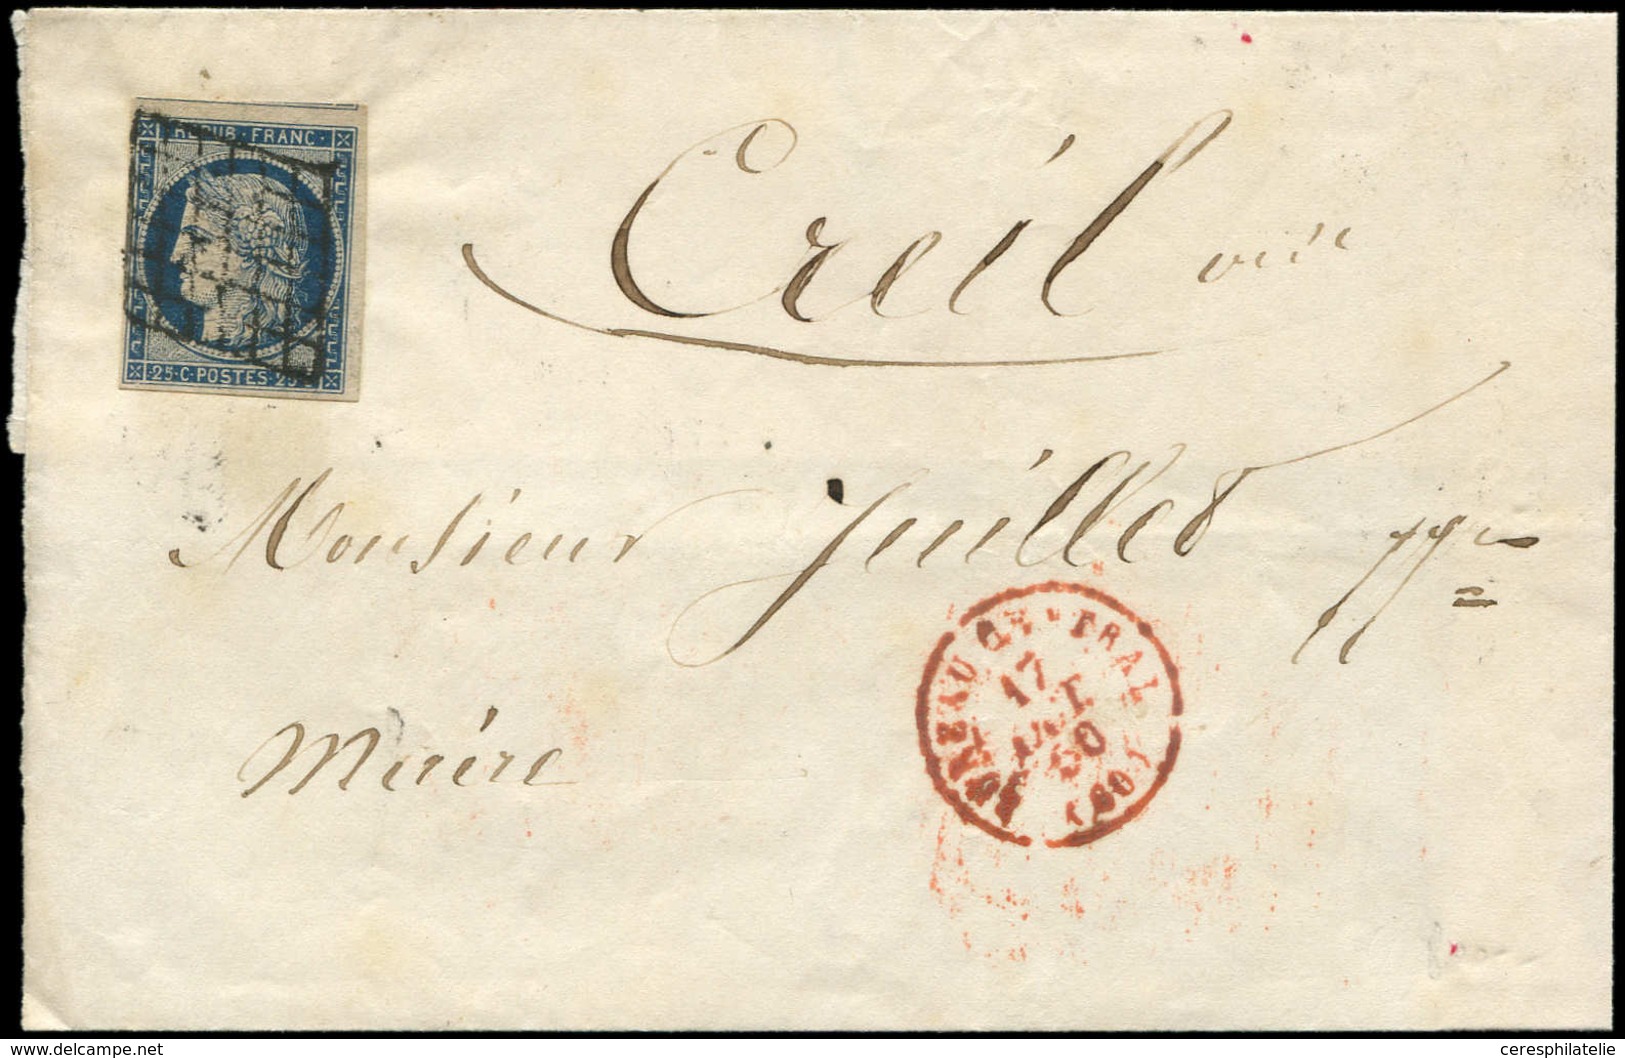 REPUB·FRANC·
25·C·POSTES·25
Creil oise
Monsieur Juillet
Maire
BUREAU GÉNÉRAL
17
50
(60)
delcampe.net
ceresphilatelie